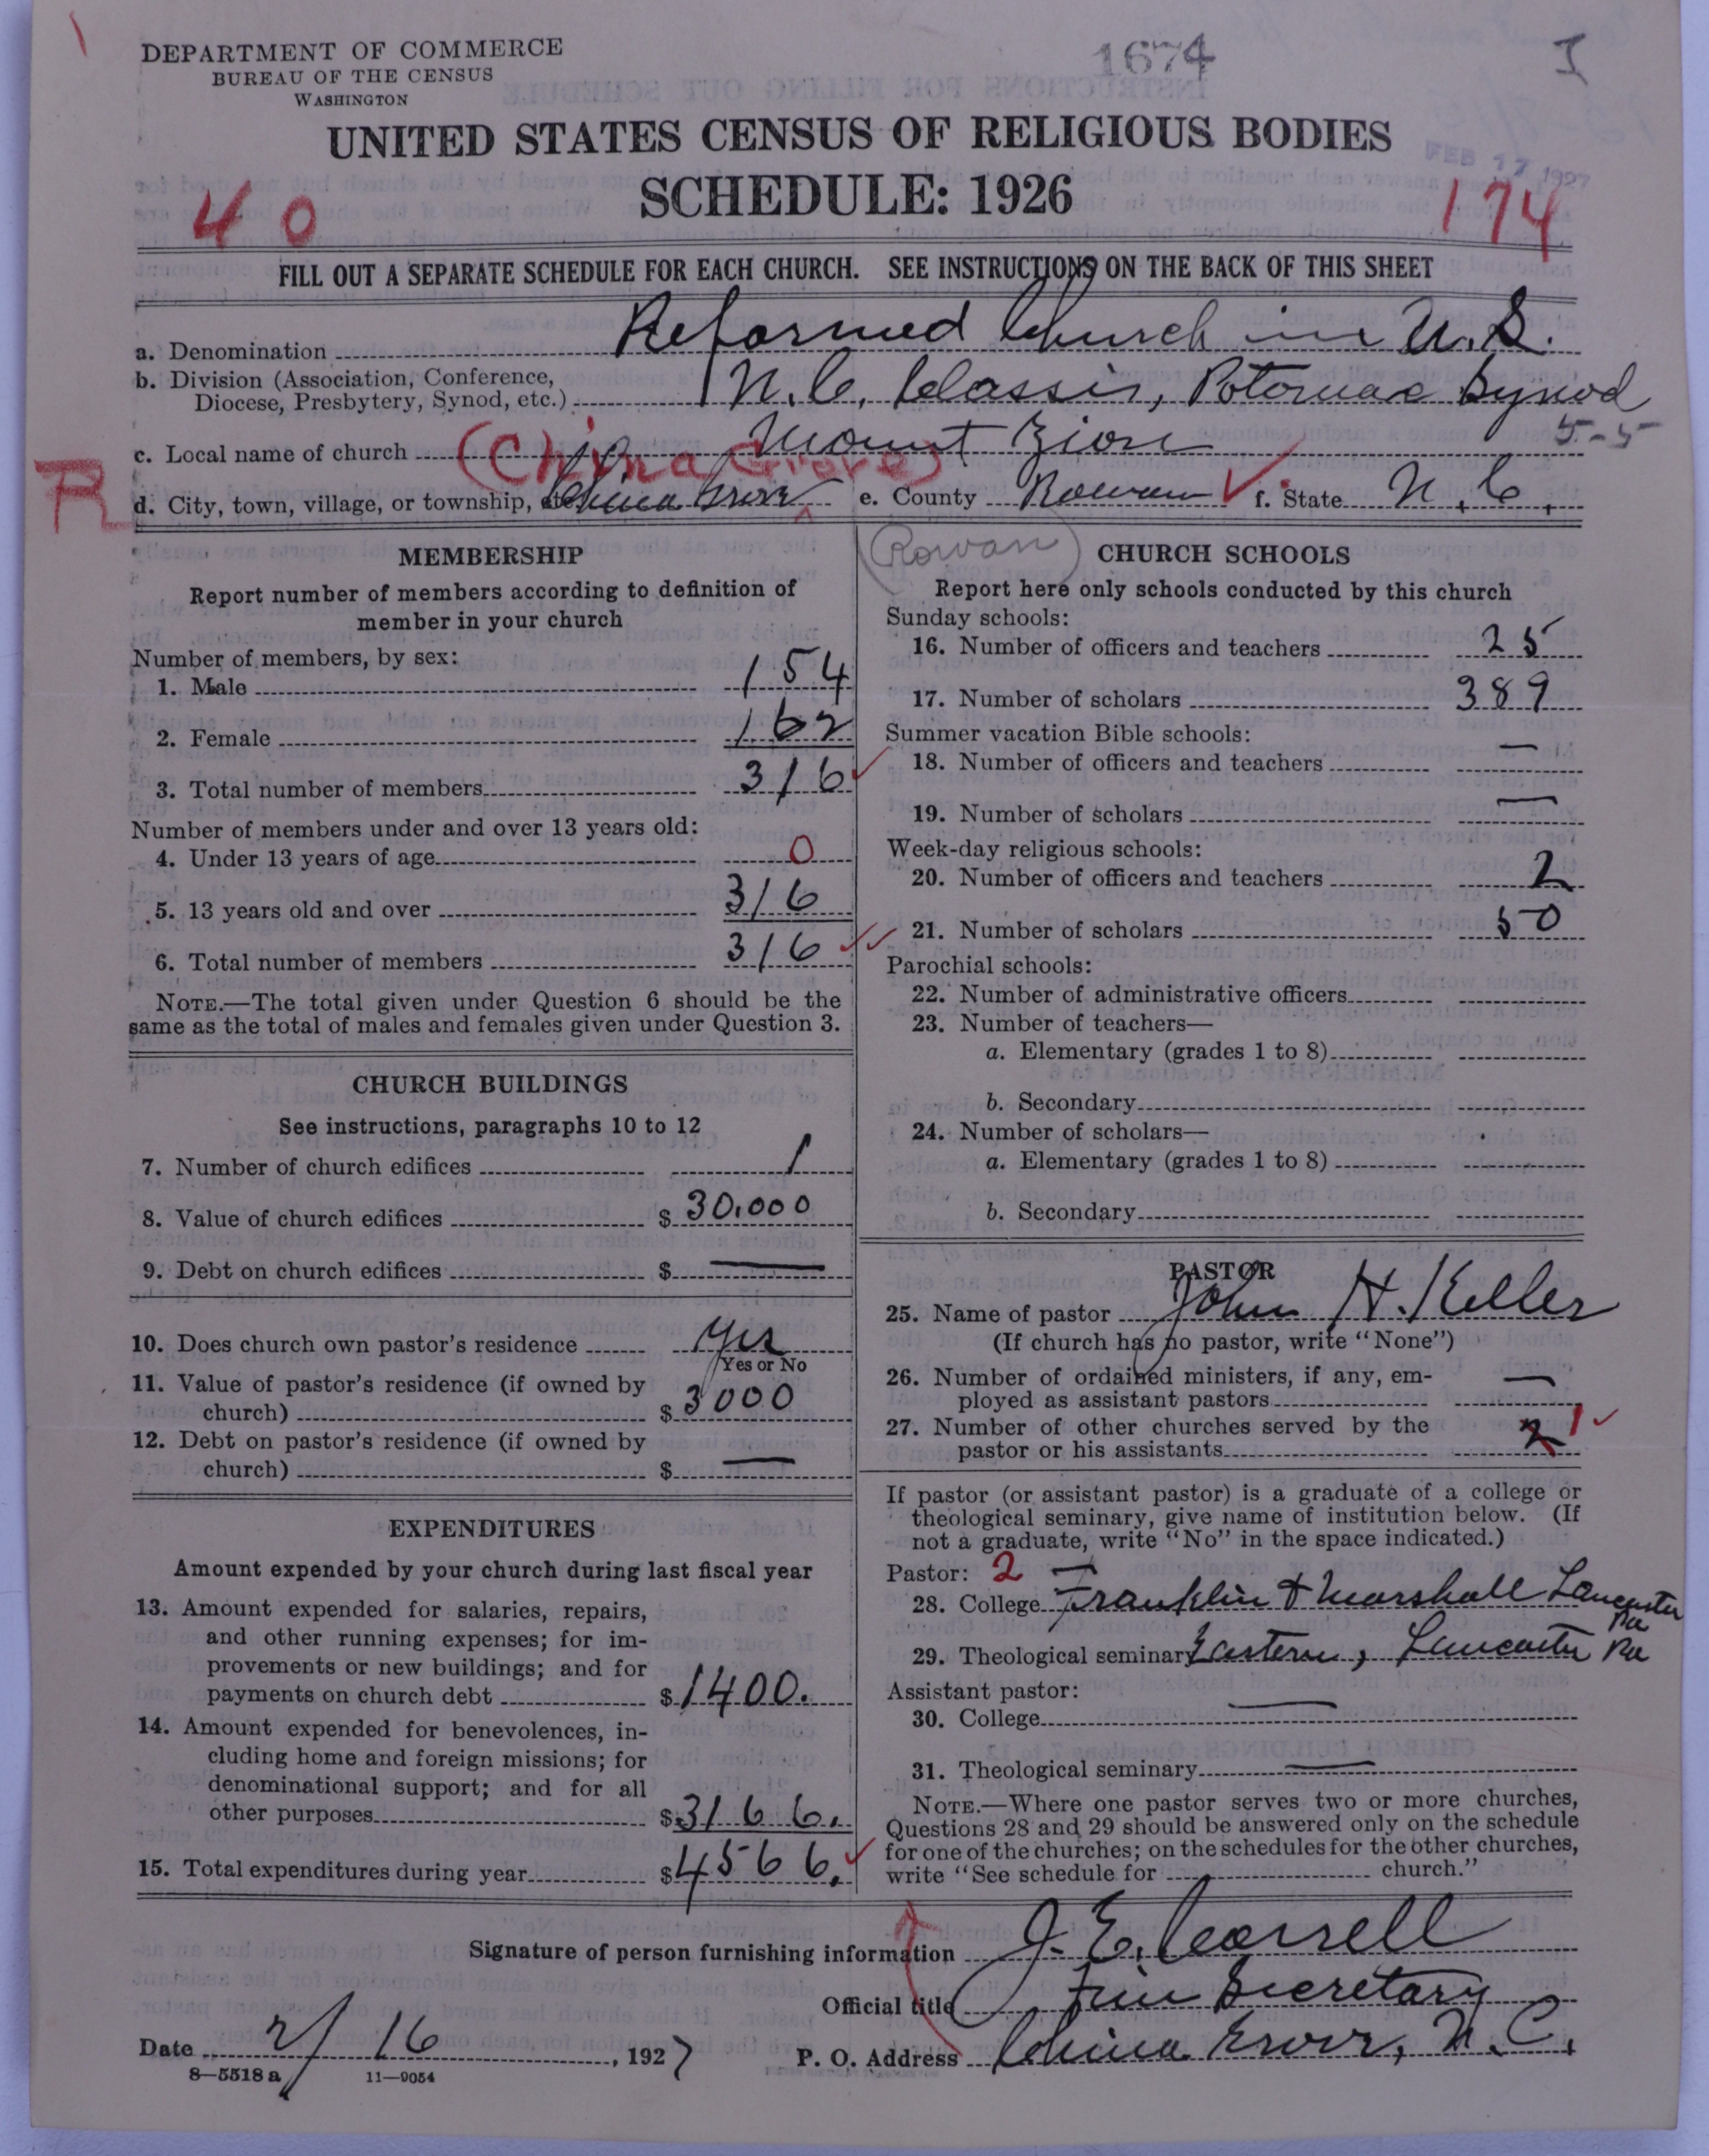 DEPARTMENT OF COMMERCE
BUREAU OF THE CENSUS
WASHINGTON
1674
I
UNITED STATES CENSUS OF RELIGIOUS BODIES
FEB 17 1927
SCHEDULE: 1926
40
174
FILL OUT A SEPARATE SCHEDULE FOR EACH CHURCH. SEE INSTRUCTIONS ON THE BACK OF THIS SHEET
a. Denomination Reformed Church in U.S.
b. Division (Association, Conference,
Diocese, Presbytery, Synod, etc.) N.C. Classis, Potomac Synod
5-5
c. Local name of church Mount Zion
(China Grove)
R
d. City, town, village, or township, etc. China Grove e. County Rowan f. State N.C.
(Rowan)
MEMBERSHIP
Report number of members according to definition of
member in your church
Number of members, by sex:
1. Male 154
2. Female 162
3. Total number of members 316
Number of members under and over 13 years old:
4. Under 13 years of age 0
5. 13 years old and over 316
6. Total number of members 316
NOTE.—The total given under Question 6 should be the
same as the total of males and females given under Question 3.
CHURCH BUILDINGS
See instructions, paragraphs 10 to 12
7. Number of church edifices 1
8. Value of church edifices $ 30,000
9. Debt on church edifices $ —
10. Does church own pastor's residence Yes
Yes or No
11. Value of pastor's residence (if owned by
church) $ 3000
12. Debt on pastor's residence (if owned by
church) $ —
EXPENDITURES
Amount expended by your church during last fiscal year
13. Amount expended for salaries, repairs,
and other running expenses; for im-
provements or new buildings; and for
payments on church debt $ 1400.
14. Amount expended for benevolences, in-
cluding home and foreign missions; for
denominational support; and for all
other purposes $ 3166.
15. Total expenditures during year $ 4566.
CHURCH SCHOOLS
Report here only schools conducted by this church
Sunday schools:
16. Number of officers and teachers 25
17. Number of scholars 389
Summer vacation Bible schools:
18. Number of officers and teachers —
19. Number of scholars —
Week-day religious schools:
20. Number of officers and teachers 2
21. Number of scholars 50
Parochial schools:
22. Number of administrative officers
23. Number of teachers—
a. Elementary (grades 1 to 8)
b. Secondary
24. Number of scholars—
a. Elementary (grades 1 to 8)
b. Secondary
PASTOR
25. Name of pastor John H. Keller
(If church has no pastor, write "None")
26. Number of ordained ministers, if any, em-
ployed as assistant pastors —
27. Number of other churches served by the
pastor or his assistants 2 1
If pastor (or assistant pastor) is a graduate of a college or
theological seminary, give name of institution below. (If
not a graduate, write "No" in the space indicated.)
Pastor: 2
28. College Franklin & Marshall Lancaster Pa
29. Theological seminary Eastern, Lancaster Pa
Assistant pastor:
30. College —
31. Theological seminary —
NOTE.—Where one pastor serves two or more churches,
Questions 28 and 29 should be answered only on the schedule
for one of the churches; on the schedules for the other churches,
write "See schedule for church."
Signature of person furnishing information J. E. Correll
Official title Fin Secretary
Date 2/16, 1927
P. O. Address China Grove, N.C.
8—5518 a 11—9054